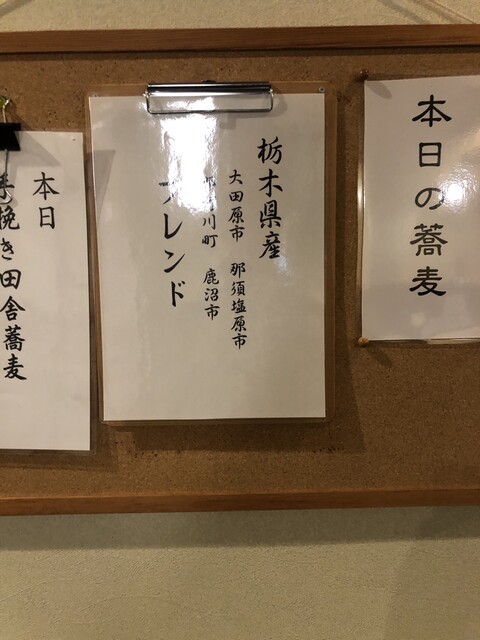 本日の蕎麦
栃木県産
大田原市 那須塩原市
川町 鹿沼市
ブレンド
本日
手挽き田舎蕎麦